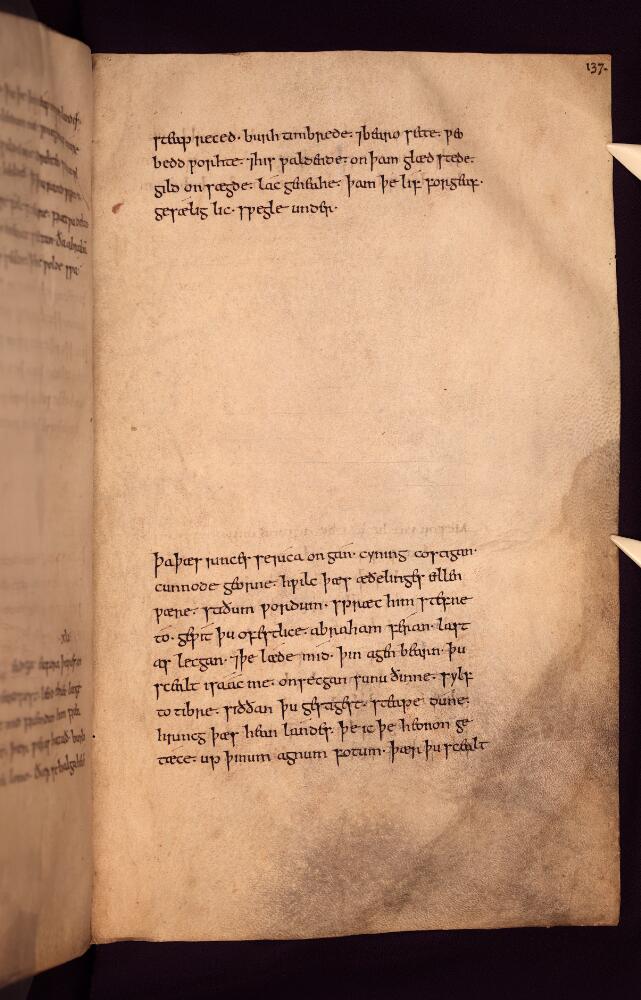 137.
steap reced· burh timbrede· ⁊bearo sette· ƿeo
bedd ƿorhte· ⁊his ƿaldende· on þam glæd stede·
gild on sægde· lac geneahe· þam þe lif forgeaf·
gesælig lic· sƿegle under·
þa þæs rinces se rica on gan· cyning costigan·
cunnode georne· hƿilc þæs æðelinges ellen
ƿære· stiðum ƿordum· spræc him stefne
to· geƿit þu ofestlice· abraham feran· last
as lecgan· ⁊þe læde mid· þin agen bearn· þu
scealt isaac me· onsecgan sunu ðinne· sylf
to tibre· siððan þu gestigest· steape dune·
hrincg þæs hean landes· þe ic þe heonon ge
tæce· up þinum agnum fotum· þær þu scealt